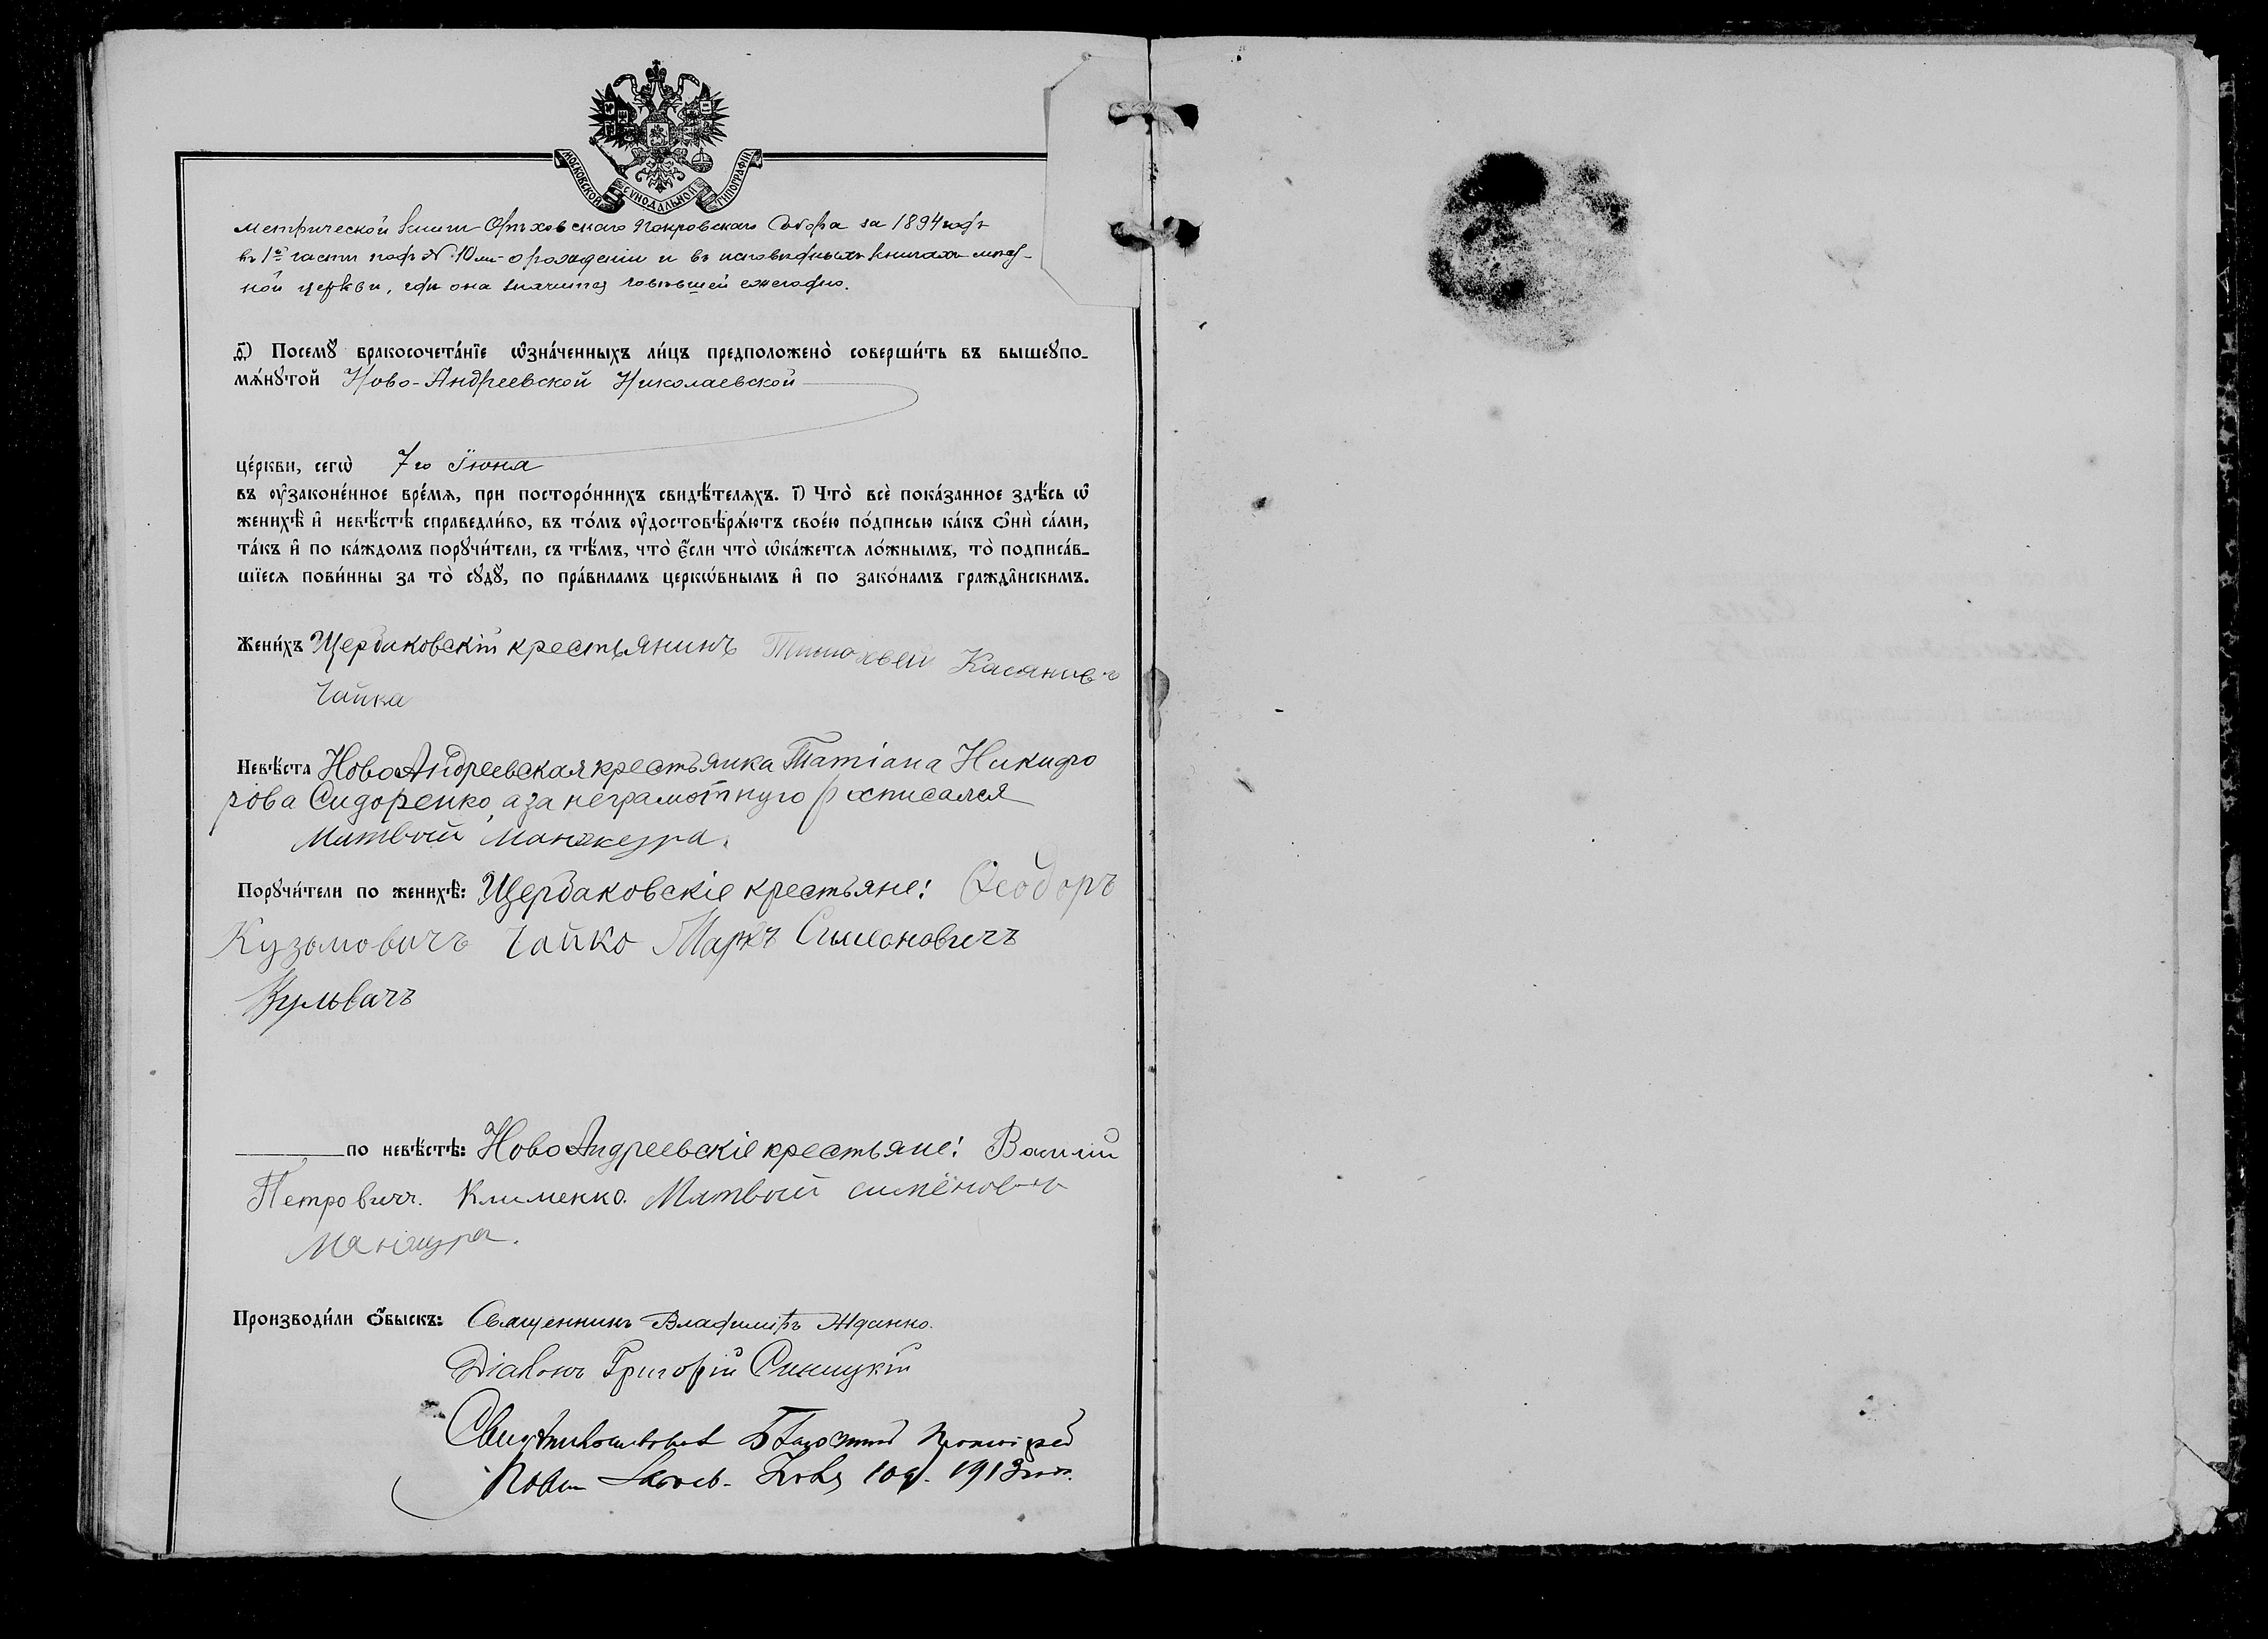 МОСКОВСКОЙ СѴНОДАЛЬНОЙ ТИПОГРАФІИ.
метрической книги Орѣховскаго Покровскаго Собора за 1894 годъ
въ 1й части подъ № 10 о рожденіи и въ исповѣдныхъ книгахъ
ной церкви, гдѣ она значится говѣвшей ежегодно.
д҃) Посемꙋ̀ бракосочета́нїе ѡ҆зна́ченныхъ ли́цъ предположено̀ соверши́ть въ вышеꙋпо-
мѧ́нꙋтой Ново-Андреевской Николаевской
це́ркви, сегѡ̀ 7го Іюня
въ ᲂу҆законе́нное вре́мѧ, при посторо́ннихъ свидѣ́телѧхъ. і҃) Что̀ всѐ пока́занное здѣ́сь ѡ҆
женихѣ̀ и҆ невѣ́стѣ справедли́во, въ то́мъ ᲂу҆достовѣрѧ́ютъ свое́ю по́дписью ка́къ ѻ҆нѝ са́ми,
та́къ и҆ по ка́ждомъ порꙋчи́тели, съ тѣ́мъ, что̀ є҆́сли что̀ ѡ҆ка́жетсѧ ло́жнымъ, то̀ подписа́в-
шїесѧ пови́нны за то̀ сꙋдꙋ̀, по пра́виламъ церкѡ́внымъ и҆ по зако́намъ гражда́нскимъ.
Жени́хъ Щербаковскій крестьянинъ Тимофей Касяновъ
Чайка
Невѣ́ста НовоАндреевская крестьянка Татіана Никифо
рова Сидоренко, а за неграмотную росписался
Матвѣй Манжура.
Порꙋчи́тели по женихѣ̀: Щербаковскіе крестьяне: Ѳеодоръ
Кузьмовичъ Чайко Маркъ Симоновичъ
Кульвачъ
по невѣ́стѣ: НовоАндреевскіе крестьяне: Василій
Петровичъ. Клименко. Матвѣй
Манжура.
Производи́ли ѻ҆́быскъ: Священникъ Владиміръ Жданко.
Діаконъ Григорій Синицкій
Свидѣтельствовалъ Благочинный Протоіерей
10 д. 1913 года.